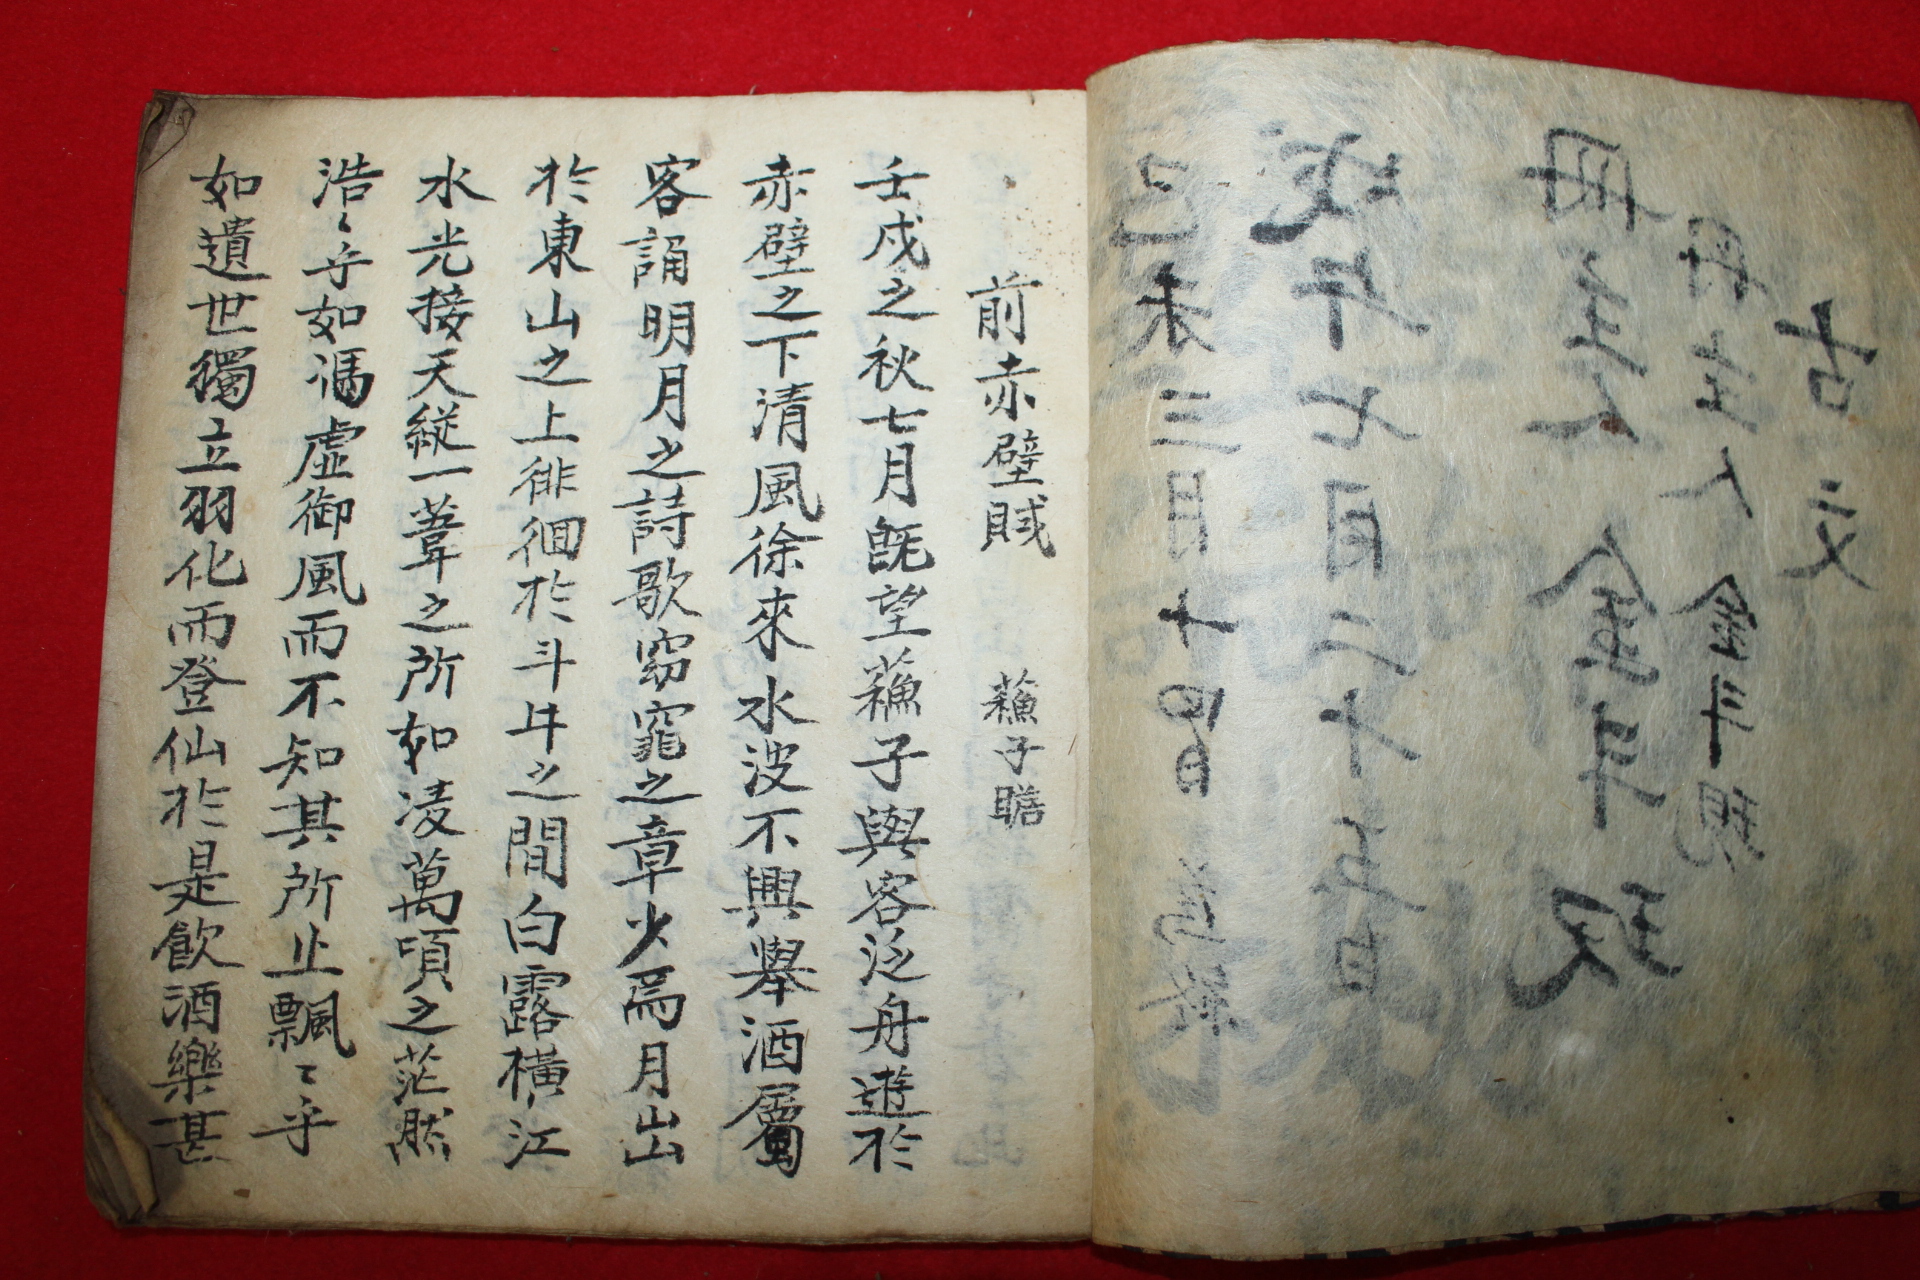 己未三月十四日
戊午七月二十五日
冊主人金斗玟
冊主人金斗現
古文
前赤壁賦 蘓子瞻
壬戌之秋七月旣望蘓子與客泛舟遊於
赤壁之下清風徐來水波不興擧酒屬
客誦明月之詩歌窈窕之章少焉月出
於東山之上徘徊於斗牛之間白露橫江
水光接天縱一葦之所如凌萬頃之茫然
浩〻乎如馮虛御風而不知其所止飄〻乎
如遺世獨立羽化而登仙於是飮酒樂甚